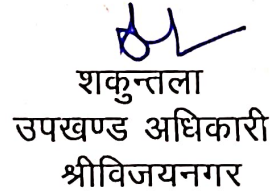 शकुन्तला
उपखण्ड अधिकारी
श्रीविजयनगर